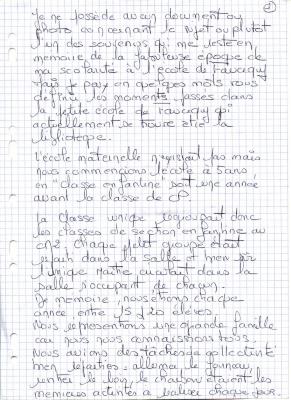 Je ne possède aucun document ou
photo concernant le sujet ou plutôt
un des souvenirs qui me reste en
mémoire de la fabuleuse époque de
ma scolarité à l'école de
mais je peux en quelques mots vous
définir les moments passés dans
la petite école de qui
actuellement se trouve être la
bibliothèque.
L'école maternelle n'existait pas mais
nous commencions l'école à 5 ans
en "classe enfantine soit une année
avant la classe de CP.
La classe unique regroupait donc
les classes de section enfantine au
CM2. Chaque petit groupe était
réparti dans la salle et mené par
l'unique Maître dans la
salle s'occupant de chacun.
De mémoire, nous étions chaque
année entre 15 à 20 élèves.
Nous représentions une grande famille
car nous nous connaissions tous.
Nous avions des tâches de collectivité
bien réparties. allumer le fourneau,
rentrer le bois, le charbon étaient les
activités à réaliser chaque jour.